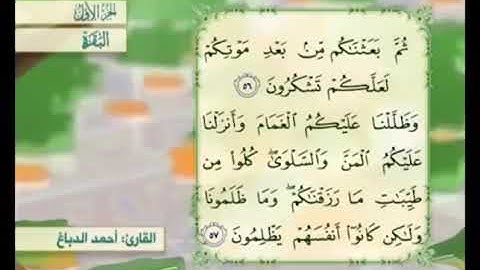 الجزء الأول
البقرة
ثُمَّ بَعَثْنَٰكُم مِّنۢ بَعْدِ مَوْتِكُمْ
لَعَلَّكُمْ تَشْكُرُونَ ٥٦
وَظَلَّلْنَا عَلَيْكُمُ ٱلْغَمَامَ وَأَنزَلْنَا
عَلَيْكُمُ ٱلْمَنَّ وَٱلسَّلْوَىٰ ۖ كُلُوا۟ مِن
طَيِّبَٰتِ مَا رَزَقْنَٰكُمْ ۖ وَمَا ظَلَمُونَا
وَلَٰكِن كَانُوٓا۟ أَنفُسَهُمْ يَظْلِمُونَ ٥٧
القارئ: أحمد الدباغ